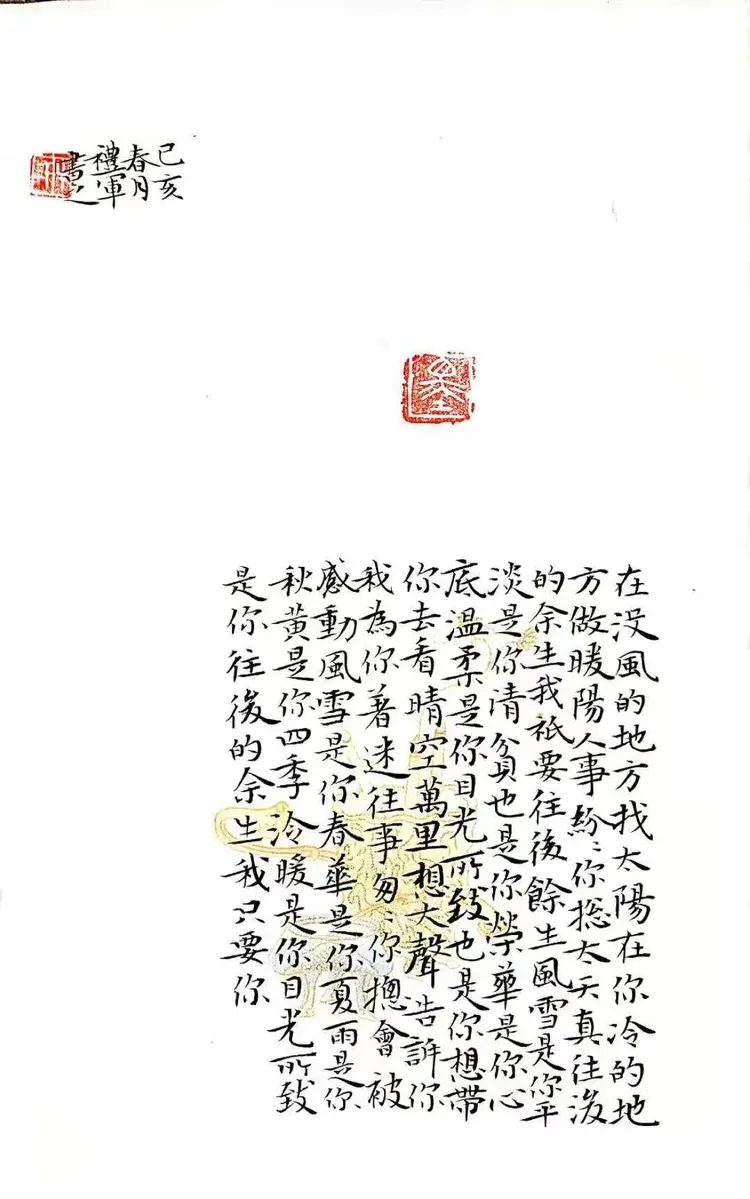 在没風的地方找太陽在你冷的地
方做暖陽人事紛〻你捴太天真往後
的余生我祇要往後餘生風雪是你平
淡是你清貧也是你榮華是你心
底溫柔是你目光所致也是你想帶
你去看晴空萬里想大聲告訴你
我為你著迷往事匆〻你摠會被
感動風雪是你春華是你夏雨是你
秋黃是你四季冷暖是你目光所致
是你往後的余生我只要你
己亥
春月
禮軍
書之